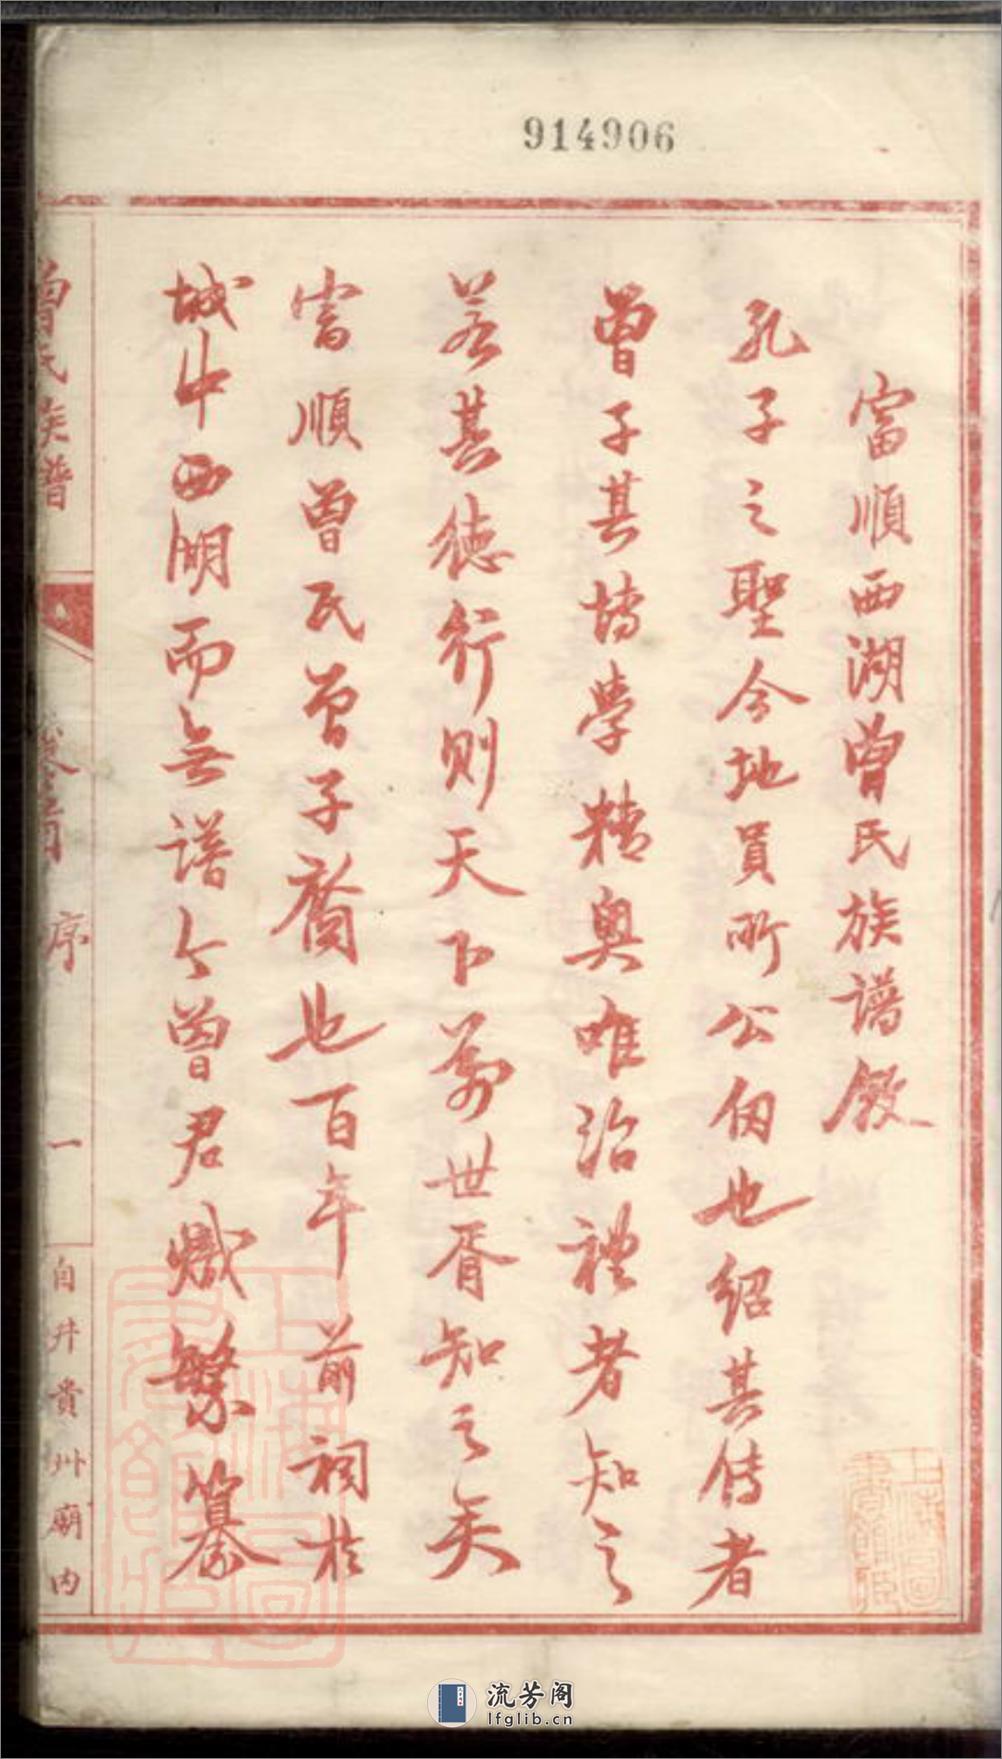 914906
富順西湖曾氏族譜敘
孔子之聖今地員所公仞也紹其传者
曾子其博學精奧唯治禮者知之
若其德行則天下萬世胥知之矣
富順曾氏曾子裔也百年前祠於
城中西湖而無譜今曾君熾繁纂
曾氏族譜
卷首
序
一
自井貴州廟内
上海圖書館藏
流芳阁
lfglib.cn